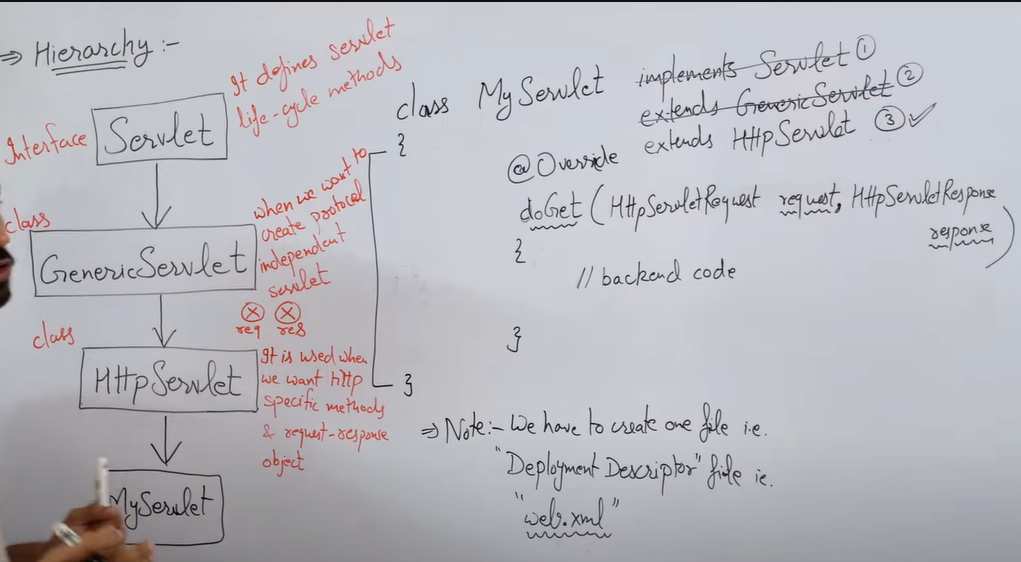 ⇒ Hierarchy :-
Interface
Servlet
It defines servlet
life-cycle methods
class
GenericServlet
when we want to
create protocol
independent
servlet
req res
class
HttpServlet
It is used when
we want http
specific methods
& request-response
object
MyServlet
class MyServlet implements Servlet ①
extends GenericServlet ②
extends HttpServlet ③ ✓
{
@Override
doGet (HttpServletRequest request, HttpServletResponse
response)
{
// backend code
}
}
⇒ Note:- We have to create one file i.e.
"Deployment Descriptor" file ie.
"web.xml"